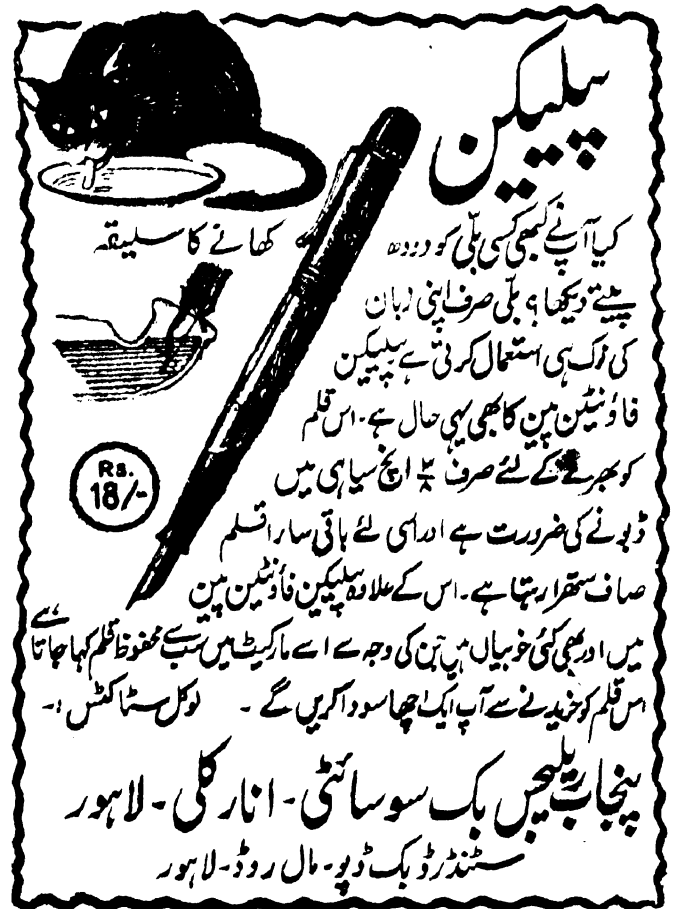 پیلیکن
کھانے کا سلیقہ
کیا آپ نے کبھی کسی بلّی کو دودھ
پیتے دیکھا؟ بلّی صرف اپنی زبان
کی نوک ہی استعمال کرتی ہے پیلیکن
فاؤنٹین پین کا بھی یہی حال ہے۔ اس قلم
کو بھرنے کے لئے صرف ۳/۸ انچ سیاہی میں
ڈبونے کی ضرورت ہے اور اسی لئے باقی سارا قلم
صاف ستھرا رہتا ہے۔ اس کے علاوہ پیلیکن فاؤنٹین پین
میں اور بھی کئی خوبیاں ہیں جن کی وجہ سے اسے مارکیٹ میں سب سے محفوظ قلم کہا جاتا ہے
اس قلم کو خریدنے سے آپ ایک اچھا سودا کریں گے ۔ لوکل سٹاکٹس :۔
Rs.
18/-
پنجاب ریلیجس بک سوسائٹی۔ انار کلی۔ لاہور
سٹنڈرڈ بک ڈپو۔ مال روڈ۔ لاہور